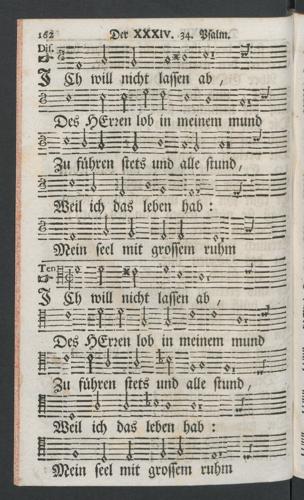 162 Der XXXIV. 34. Psalm.
Dis.
ICh will nicht lassen ab,
Des HErren lob in meinem mund
Zu führen stets und alle stund,
Weil ich das leben hab:
Mein seel mit grossem ruhm
Ten
ICh will nicht lassen ab,
Des HErren lob in meinem mund
Zu führen stets und alle stund,
Weil ich das leben hab:
Mein seel mit grossem ruhm